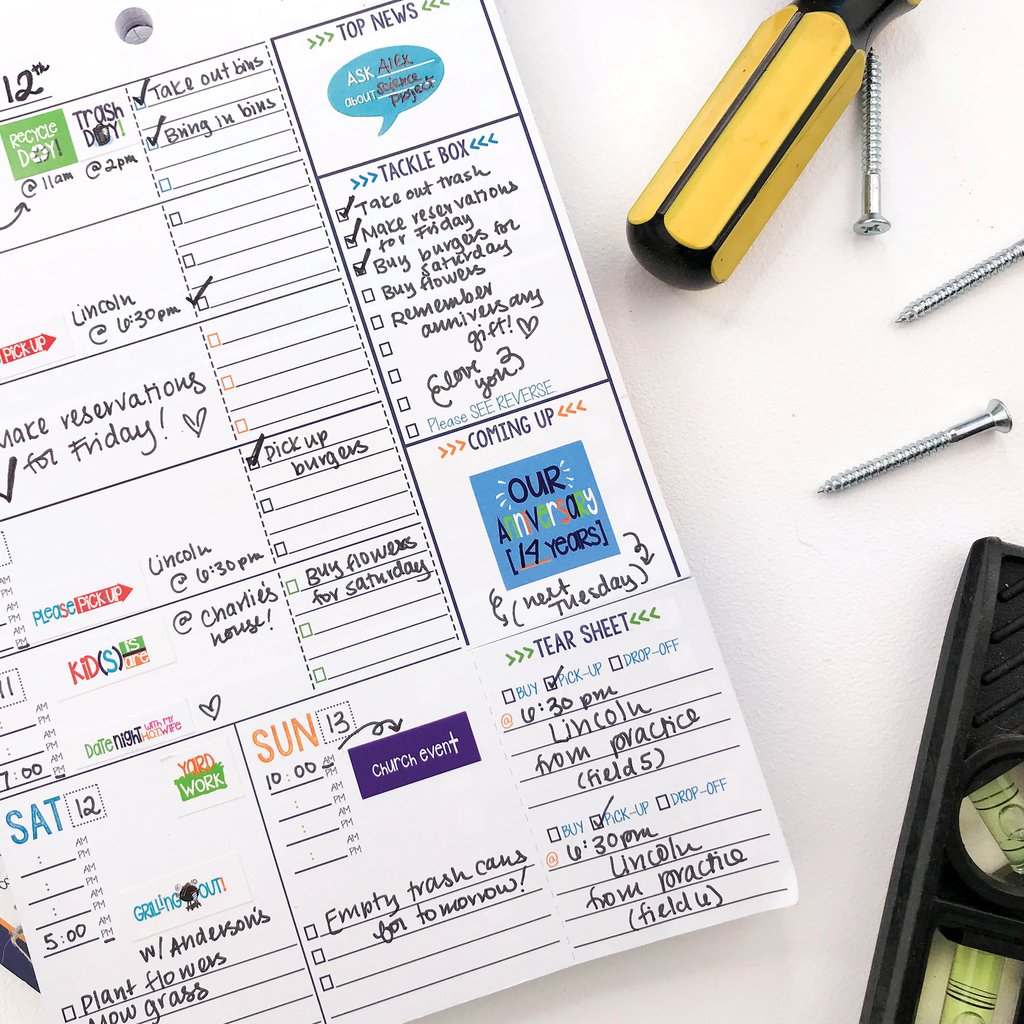 12th
RECYCLE
DAY!
TRASH
DAY!
@ 11am
@ 2pm
Take out bins
Bring in bins
Lincoln
@ 6:30pm
PICK UP
Make reservations
for Friday!
Pick up
burgers
AM
PM
AM
PM
AM
PM
PLEASE PICK UP
Lincoln
@ 6:30pm
@ Charlie's
house!
Buy flowers
for Saturday
KID(S) is
are
11
AM
PM
AM
PM
AM
7:00 PM
DATE NIGHT WITH MY
HOT WIFE
YARD
WORK
SAT 12
AM
: PM
AM
: PM
AM
: PM
AM
5:00 PM
GRILLING OUT!
w/ Andersons
Plant flowers
Mow grass
SUN 13
10:00 AM
PM
AM
: PM
AM
: PM
AM
: PM
Church event
Empty trash cans
for tomorrow!
>>> TOP NEWS <<<
ASK Alex
about Science
Project
>>> TACKLE BOX <<<
Take out trash
Make reservations
for Friday
Buy burgers for
Saturday
Buy flowers
Remember
anniversary
gift!
{love
you}
Please SEE REVERSE.
>>> COMING UP <<<
OUR
Anniversary
[14 YEARS]
(next
Tuesday)
>>> TEAR SHEET <<<
BUY PICK-UP DROP-OFF
@ 6:30 pm
Lincoln
from practice
(field 5)
BUY PICK-UP DROP-OFF
@ 6:30pm
Lincoln
from practice
(field 6)